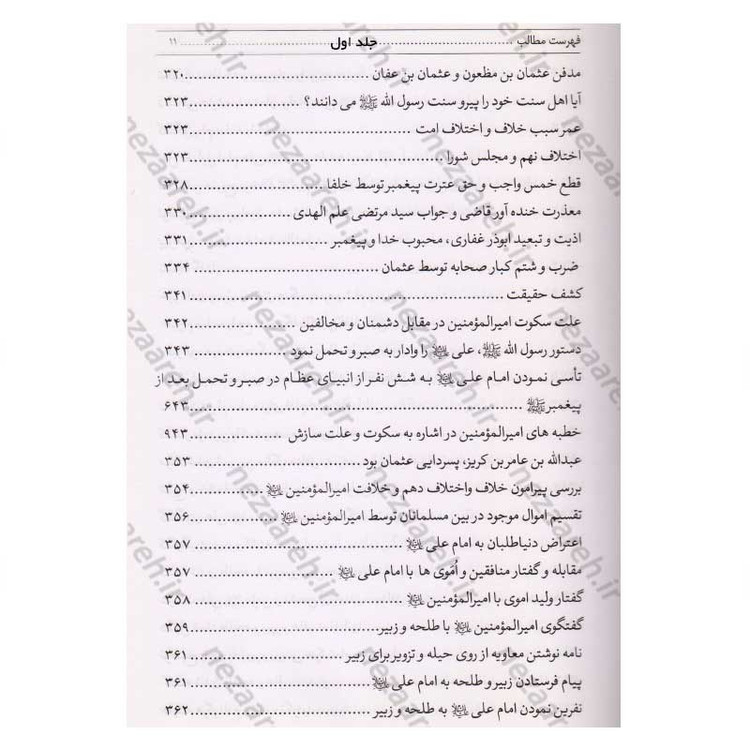 فهرست مطالب ........ جلد اول ........ ۱۱
مدفن عثمان بن مظعون و عثمان بن عفان ........ ۳۲۰
آیا اهل سنت خود را پیرو سنت رسول الله ﷺ می دانند؟ ........ ۳۲۳
عمر سبب خلاف و اختلاف امت ........ ۳۲۳
اختلاف نهم و مجلس شورا ........ ۳۲۳
قطع خمس واجب و حق عترت پیغمبر توسط خلفا ........ ۳۲۸
معذرت خنده آور قاضی و جواب سید مرتضی علم الهدی ........ ۳۳۰
اذیت و تبعید ابوذر غفاری، محبوب خدا و پیغمبر ........ ۳۳۱
ضرب و شتم کبار صحابه توسط عثمان ........ ۳۳۴
کشف حقیقت ........ ۳۴۱
علت سکوت امیرالمؤمنین در مقابل دشمنان و مخالفین ........ ۳۴۲
دستور رسول الله ﷺ، علی علیه السلام را وادار به صبر و تحمل نمود ........ ۳۴۳
تأسی نمودن امام علی علیه السلام به شش نفر از انبیای عظام در صبر و تحمل بعد از
پیغمبر ﷺ ........ ۶۴۳
خطبه های امیرالمؤمنین در اشاره به سکوت و علت سازش ........ ۹۴۳
عبدالله بن عامر بن کریز، پسردایی عثمان بود ........ ۳۵۳
بررسی پیرامون خلاف واختلاف دهم و خلافت امیرالمؤمنین علیه السلام ........ ۳۵۴
تقسیم اموال موجود در بین مسلمانان توسط امیرالمؤمنین علیه السلام ........ ۳۵۶
اعتراض دنیاطلبان به امام علی علیه السلام ........ ۳۵۷
مقابله و گفتار منافقین و اُمَوی ها با امام علی علیه السلام ........ ۳۵۷
گفتار ولید اموی با امیرالمؤمنین علیه السلام ........ ۳۵۸
گفتگوی امیرالمؤمنین علیه السلام با طلحه و زبیر ........ ۳۵۹
نامه نوشتن معاویه از روی حیله و تزویر برای زبیر ........ ۳۶۱
پیام فرستادن زبیر و طلحه به امام علی علیه السلام ........ ۳۶۱
نفرین نمودن امام علی علیه السلام به طلحه و زبیر ........ ۳۶۲
nezaareh.ir